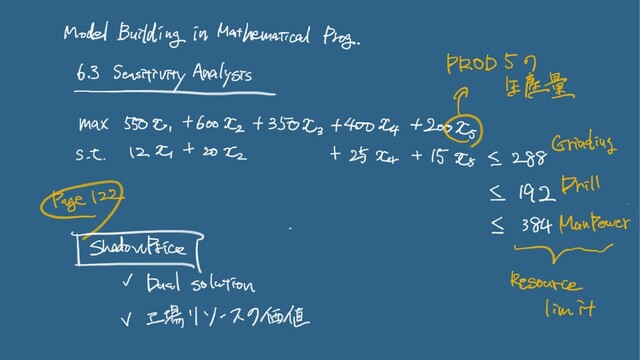 Model Building in Mathematical Prog.
6.3 Sensitivity Analysis
PROD 5の
生産量
max 550x₁ + 600x₂ + 350x₃ + 400x₄ + 200x₅
s.t. 12x₁ + 20x₂ + 25x₄ + 15x₅ ≤ 288 Grinding
≤ 192 Drill
≤ 384 ManPower
Page 122
Shadow Price
✓ Dual solution
✓ 工場リソースの価値
Resource
limit